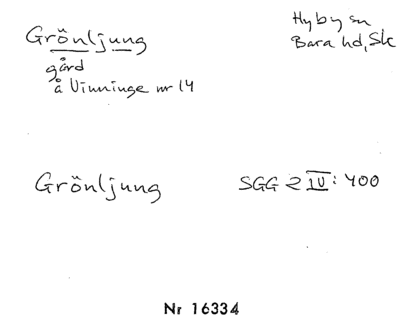 Grönljung
gård
å Vinninge nr 14
Hyby sn
Bara hd, Sk
Grönljung
SGG 2 IV: 400
Nr 16334